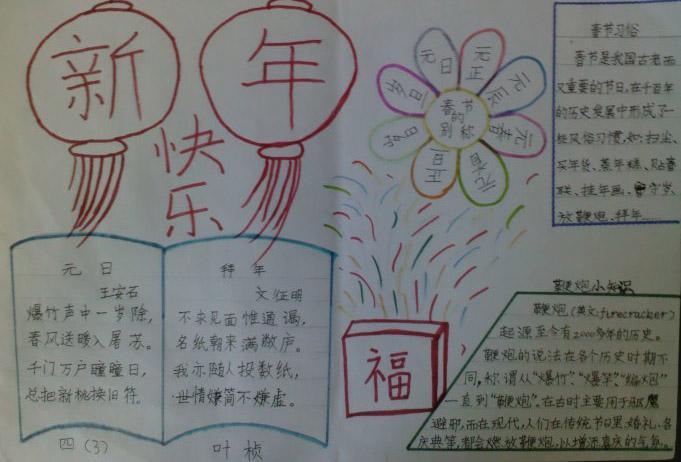 新年
快乐
元日
王安石
爆竹声中一岁除,
春风送暖入屠苏。
千门万户曈曈日,
总把新桃换旧符。
四(3)
拜年
文征明
不求见面惟通谒,
名纸朝来满敝庐。
我亦随人投数纸,
世情嫌简不嫌虚。
叶桢
春节
的
别称
元日
元正
元辰
元春
元朔
正日
岁旦
春节习俗
春节是我国古老而
又重要的节日,在千百年
的历史发展中形成了一
些风俗习惯,如:扫尘、
买年货、蒸年糕、贴春
联、挂年画、守岁、
放鞭炮、拜年……
福
鞭炮小知识
鞭炮(英文:firecracker)
起源至今有2000多年的历史。
鞭炮的说法在各个历史时期不
同,称谓从“爆竹”、“爆竿”、“编炮”
一直到“鞭炮”。在古时主要用于驱魔
避邪,而在现代,人们在传统节日、婚礼、各
庆典等,都会燃放鞭炮,以增添喜庆的气氛。